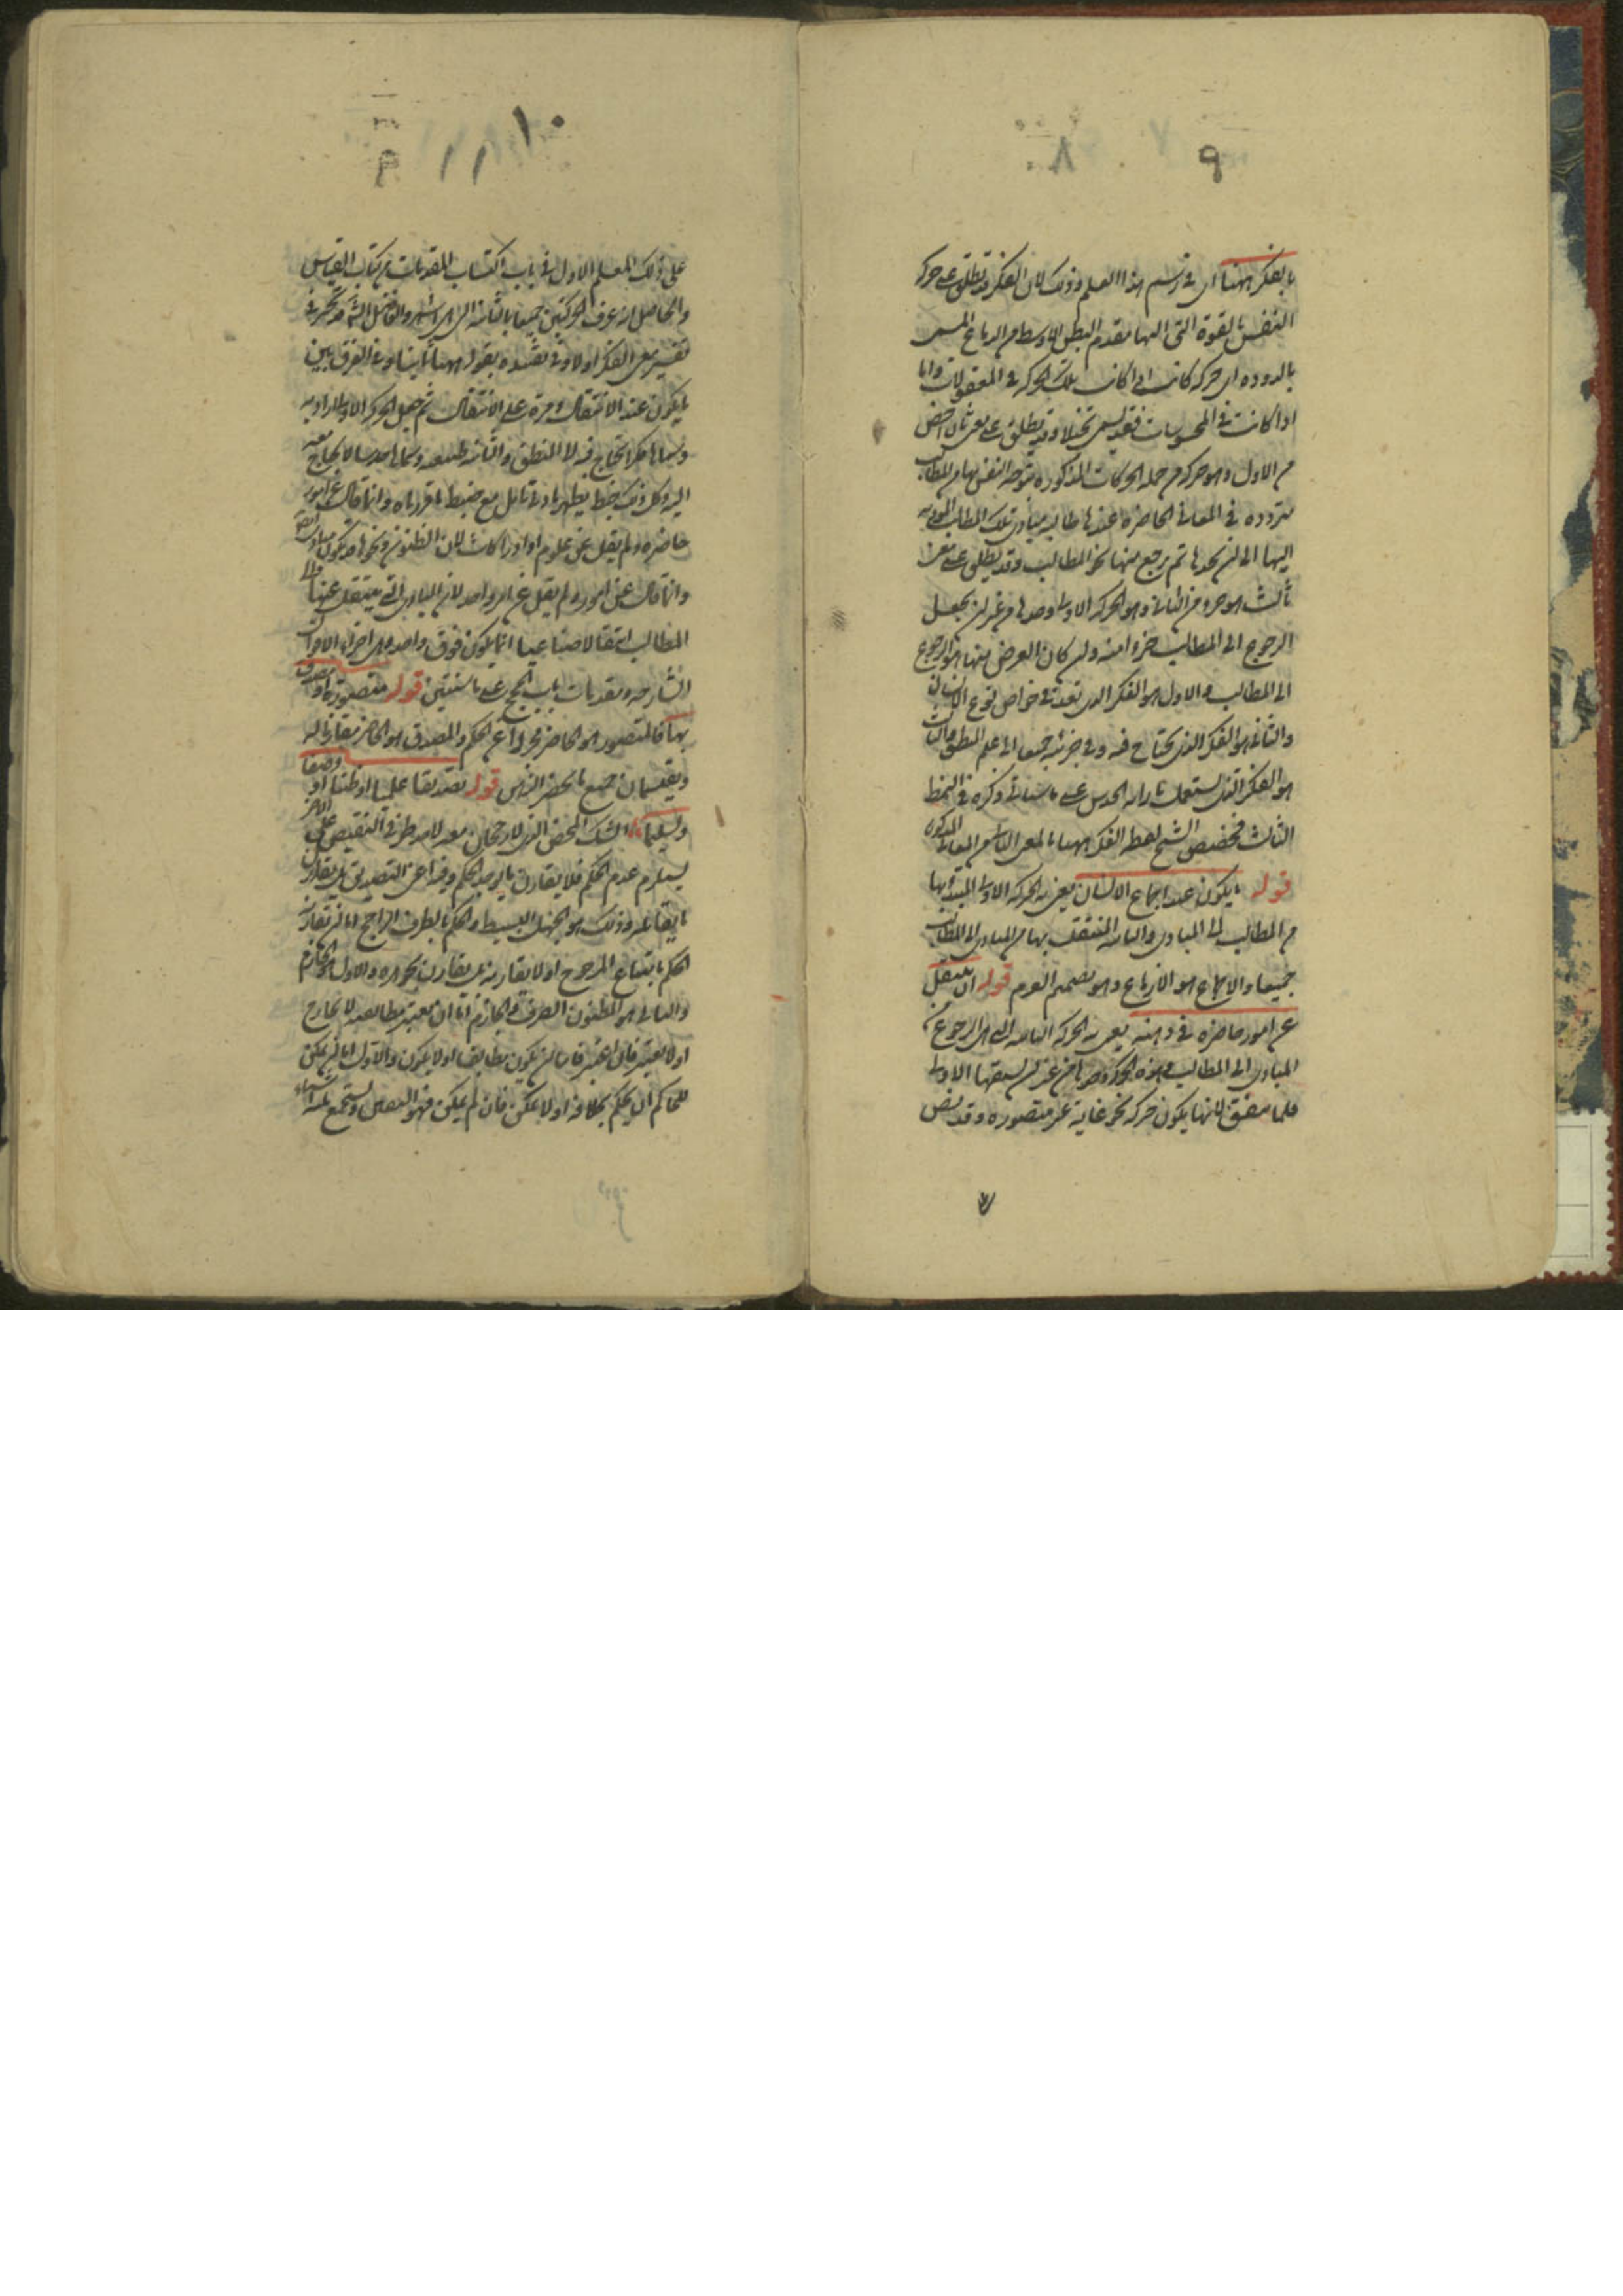 ٩
٨
بالفكر ههنا اى فى رسم هذا العلم وذلك لان الفكر قد يطلق على حركة
النفس بالقوة التى التها مقدم البطن الاوسط من الدماغ المسمى
بالدودة اى حركة كانت اذا كانت تلك الحركة فى المعقولات واما
اذا كانت فى المحسوسات فقد يسمى تخيلا وقد يطلق على معنى ثان اخص
من الاول وهو حركة من جملة الحركات المذكورة تتوجه النفس بها من المطالب
مترددة فى المعانى الحاضرة عندها طالبة مبادى تلك المطالب المؤدية
اليها الى ان تجدها ثم ترجع منها نحو المطالب وقد يطلق على معنى
ثالث هو جزء من الثانى وهو الحركة الاولى وحدها من غير ان يجعل
الرجوع الى المطالب جزءا منه وان كان الغرض منها هو الرجوع
الى المطالب والاول هو الفكر الذى يعد فى خواص نوع الانسان
والثانى هو الفكر الذى يحتاج فيه وفى جزئيه جميعا الى علم المنطق والثالث
هو الفكر الذى يستعمل بازائه الحدس على ما سيأتى ذكره فى النمط
الثالث فخصص الشيخ لفظة الفكر ههنا بالمعنى الثانى من المعانى المذكورة
قوله ما يكون عند اجماع الانسان يعنى به الحركة الاولى المبتدأ بها
من المطالب الى المبادى والثانية المنتقل بها من المبادى الى المطالب
جميعا والاجماع هو الازماع وهو تصميم العزم قوله ان ينتقل
عن امور حاضرة فى ذهنه يعنى به الحركة الثانية التى هى الرجوع من
المبادى الى المطالب وهذه الحركة وحدها من غير ان تسبقها الاولى
قلما يتفق لانها يكون حركة نحو غاية غير متصورة وقد نص
١٠
١١
٩
على ذلك المعلم الاول فى باب اكتساب المقدمات من كتاب القياس
والحاصل انه عرف الحركتين جميعا بالثانية التى هى اشهر والفاضل الشارح تحير فى
تفسير معنى الفكر اولا وفى تقييده بقوله ههنا ثانيا وفى الفرق بين
ما يكون عند الانتقال ثم جعل الحركة الاولى ارادية
وسماها فكرا يحتاج فيه الى المنطق والثانية طبيعية وسماها حدسا لا يحتاج معه
اليه وكل ذلك خبط يظهر بادنى تأمل مع ضبط ما قررناه وانما قال عن امور
حاضرة ولم يقل عن علوم او ادراكات لان الظنون ونحوها قد تكون مبادى ايضا
وانما قال عن امور ولم يقل عن امر واحد لان المبادى التى ينتقل عنها الى
المطالب انتقالا صناعيا انما يكون فوق واحدة وهى اجزاء الاقوال
الشارحة ومقدمات الحجج على ما سنبين قوله متصورة او مصدق
بها فالمتصور هو الحاضر مجردا عن الحكم والمصدق هو الحاضر مقارنا له
ويقتسمان جميع ما يحضر الذهن قوله تصديقا علميا او ظنيا او وضعيا
وتسليما الشك المحض الذى لا رجحان معه لاحد طرفى النقيض على الآخر
يستلزم عدم الحكم فلا يقارن ما يوجد الحكم فيه اعنى التصديق بل يقارن
ما يقابله وذلك هو الجهل البسيط والحكم بالطرف الراجح اما ان يقارنه
الحكم بامتناع المرجوح او لا يقارنه بل يقارن تجويزه والاول هو الجازم
والثانى هو المظنون الصرف والجازم اما ان يعتبر مطابقته للخارج
او لا يعتبر فان اعتبر فاما ان يكون مطابقا او لا يكون والاول اما ان يمكن
للحاكم ان يحكم بخلافه او لا يمكن فان لم يمكن فهو اليقين ويستجمع ثلثة اشياء